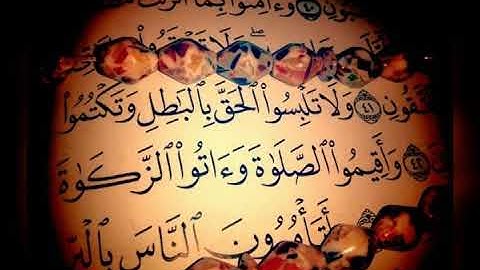 وَءَامِنُوا۟ بِمَآ
وَلَا
فَٱتَّقُونِ ٤١ وَلَا تَلْبِسُوا۟ ٱلْحَقَّ بِٱلْبَٰطِلِ وَتَكْتُمُوا۟
٤٢ وَأَقِيمُوا۟ ٱلصَّلَوٰةَ وَءَاتُوا۟ ٱلزَّكَوٰةَ
أَتَأْمُرُونَ ٱلنَّاسَ بِٱلْبِرِّ